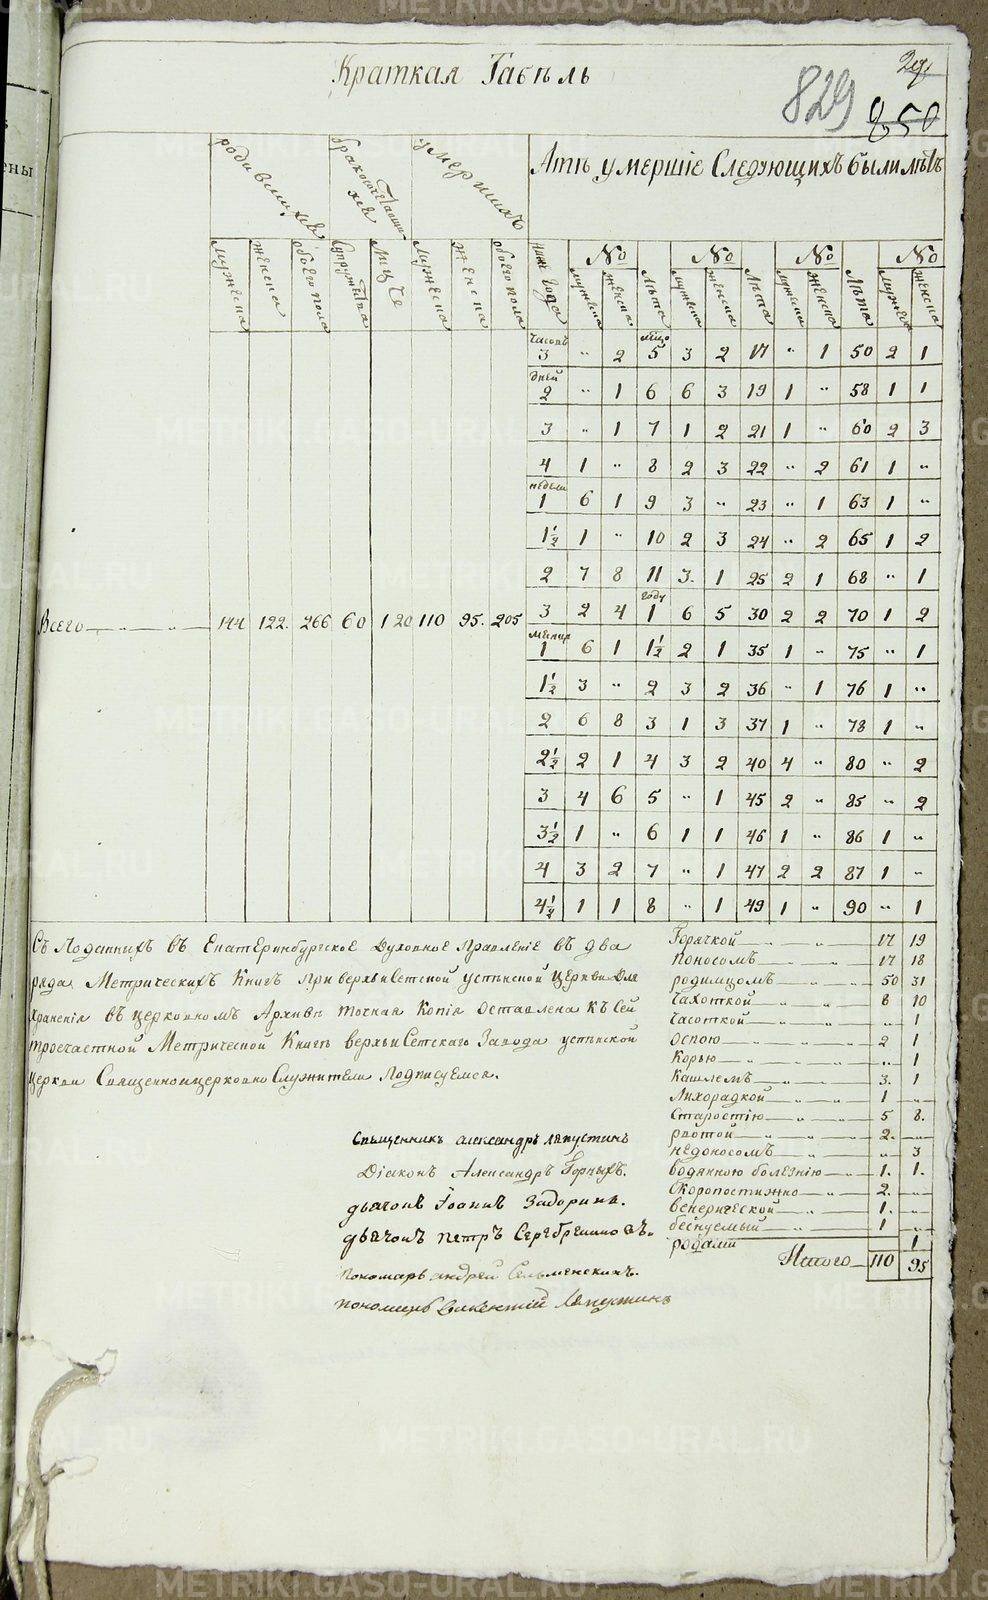 Краткая Табель
829
850
родившихся
бракосочетавшихся
умершихъ
Лѣтъ умершіе Слѣдующихъ были лѣтъ
мужеска
женска
обоего пола
супружества
лице
мужеска
женска
обоего пола
ниже года
№
мужеска
женска
лѣта
№
мужеска
женска
лѣта
№
мужеска
женска
лѣта
№
мужеска
женска
часовъ 3 " 2 месяцо 5 3 2 17 " 1 50 2 1
дней 2 " 1 6 6 3 19 1 " 58 1 1
3 " 1 7 1 2 21 1 " 60 2 3
4 1 " 8 2 3 22 " 2 61 1 "
недели 1 6 1 9 3 " 23 " 1 63 1 "
1½ 1 " 10 2 3 24 " 2 65 1 2
2 7 8 11 3. 1 25 2 1 68 " 1
Всего 144 122. 266 60 120 110 95. 205 3 2 4 году 1 6 5 30 2 2 70 1 2
1 6 1 1½ 2 1 35 1 " 75 " 1
1½ 3 " 2 3 2 36 " 1 76 1 "
2 6 8 3 1 3 37 1 " 78 1 "
2½ 2 1 4 3 2 40 4 " 80 " 2
3 4 6 5 " 1 45 2 " 85 " 2
3½ 1 " 6 1 1 46 1 " 86 1 "
4 3 2 7 " 1 47 2 2 87 1 "
4½ 1 1 8 " 1 49 1 " 90 " 1
Съ Поданныхъ въ Екатеринбургское Духовное Правленіе въ два
рода Метрическихъ Книгъ при верхъисетской успенской Церкви Для
Храненія въ церковномъ Архивѣ точная Копія оставлена къ сей
троечастной Метрической Книгѣ верхъисетскаго Завода успенской
Церкви Священноицерковно Служители Подписуемся.
Священникъ александръ Ляпустинъ
Діаконъ Александръ Горныхъ.
дьячокъ Іоаннъ Задоринъ.
дьячокъ петръ Серебренниковъ.
пономарь андрей Сельменскихъ.
пономарь Викентій Ляпустинъ
Горячкой 17 19
Поносомъ 17 18
родимцомъ 50 31
Чахоткой 8 10
Часоткой " 1
оспою 2 1
Корью " 1
Кашлемъ 3. 1
Лихорадкой 1 "
Старостію 5 8.
рвотой 2. "
недоносомъ " 3
водянною болезнію 1. 1.
Скоропостижно 2. "
венерической 1. "
беснуемый 1 "
родами 1
Итого 110 95
METRIKI.GASO-URAL.RU